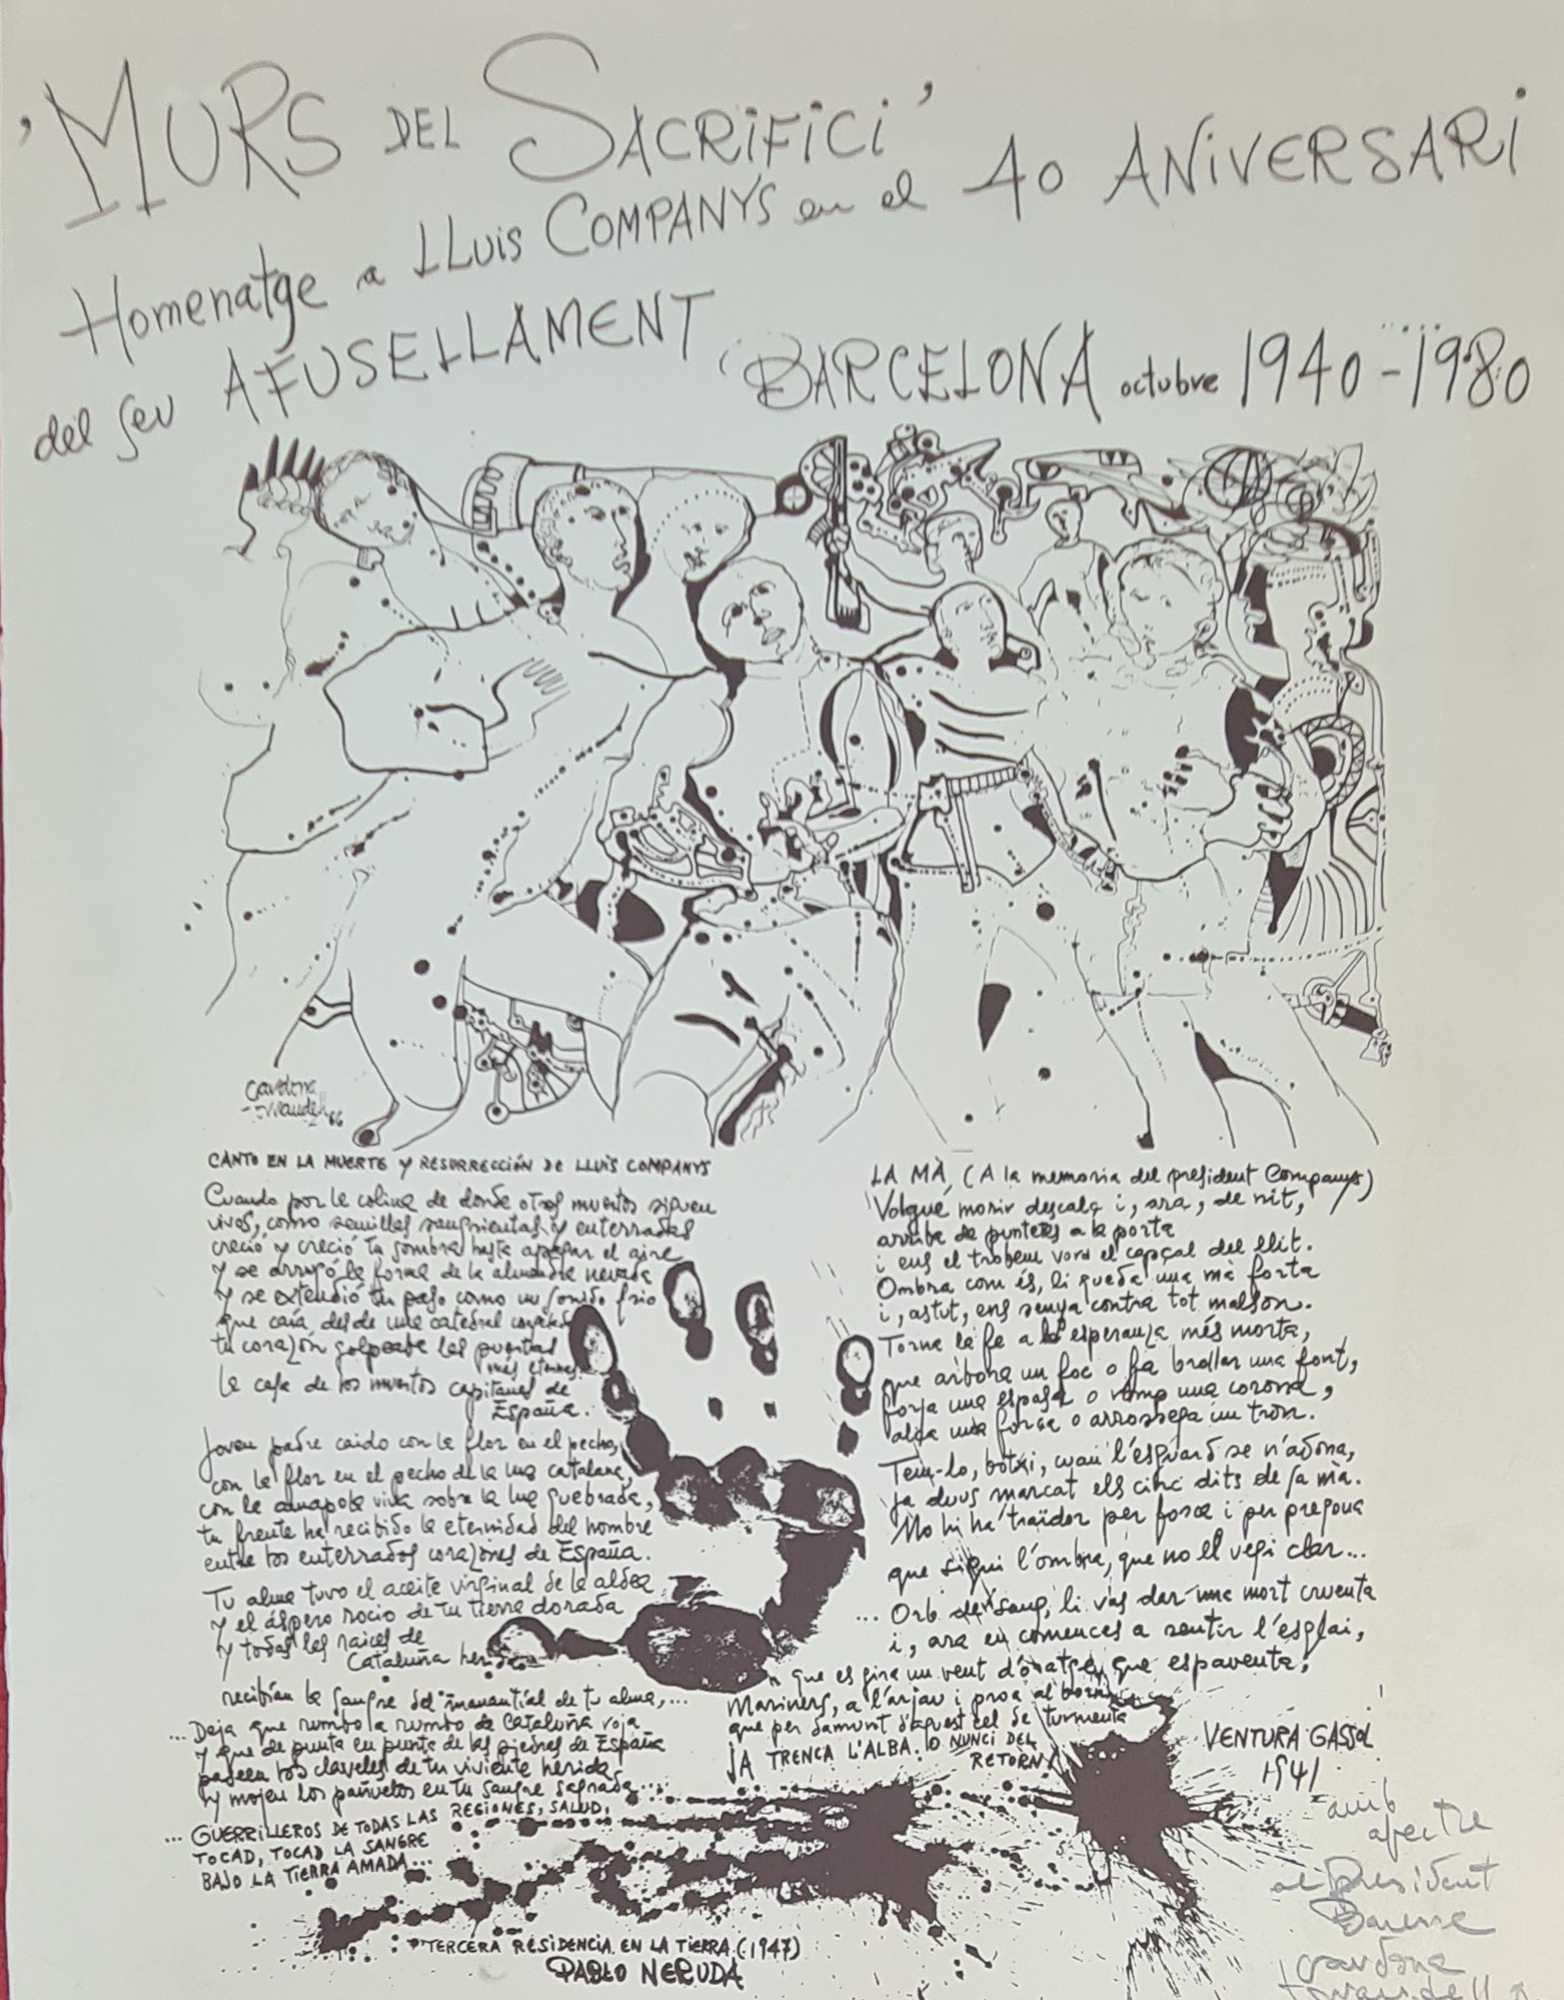 'MURS DEL SACRiFiCi'
Homenatge a LLuis COMPANYS en el 40 ANiVERSARi
del seu AFUSELLAMENT, BARCELONA octubre 1940-1980
Cardona
Torrandell 66
CANTO EN LA MUERTE Y RESURRECCIÓN DE LLUIS COMPANYS
Cuando por la colina de donde otros muertos siguen
vivos, como semillas sangrientas y enterradas
creció y creció tu sombra hasta apagar el aire
y se arrugó la forma de la almendra nevada
y se extendió tu paso como un sonido frio
que caía desde una catedral
tu corazón golpeaba las puertas
más eternas:
La casa de los muertos capitanes de
España.
Joven padre caido con la flor en el pecho,
con la flor en el pecho de la luz catalana,
con la amapola viva sobre la luz quebrada,
tu frente ha recibido la eternidad del hombre
entre los enterrados corazones de España.
Tu alma tuvo el aceite virginal de la aldea
y el áspero rocio de tu tierra dorada
y todas las raices de
Cataluña herida
recibían la sangre del manantial de tu alma,...
... Deja que rumbo a rumbo de Cataluña roja
y que de punta en punta de las piedras de España
paseen los claveles de tu viviente herida
y mojen los pañuelos en tu sangre sagrada...
... GUERRILLEROS DE TODAS LAS REGIONES, SALUD,
TOCAD, TOCAD LA SANGRE
BAJO LA TIERRA AMADA...
TERCERA RESIDENCIA EN LA TIERRA, (1947)
PABLO NERUDA
LA MÀ, (A la memoria del president Companys)
Volgué morir descalç i, ara, de nit,
arriba de puntetes a la porta
i ens el trobem vora el capçal del llit.
Ombra com és, li queda una mà forta
i, astut, ens senya contra tot malson.
Torna la fe a l'esperança més morta,
que arbora un foc o fa brollar una font,
forja una espasa o romp una corona,
alça una força o arrossega un tron.
Tem-lo, botxí, quan l'esguard se n'adona,
ja duus marcat els cinc dits de sa mà.
No hi ha traïdor per fosca i per pregona
que sigui l'ombra, que no el vegi clar...
... Orb de sang, li vas dar una mort cruenta
i, ara en comences a sentir l'esglai,
que es gira un vent d'oratge que espaventa.
Mariners, a l'arjau i proa al
que per damunt d'aquest cel de turmenta
JA TRENCA L'ALBA. O NUNCI DEL
RETORN!
VENTURA GASSOL
1941
amb
afecte
al President
Barrera
Cardona
Torrandell